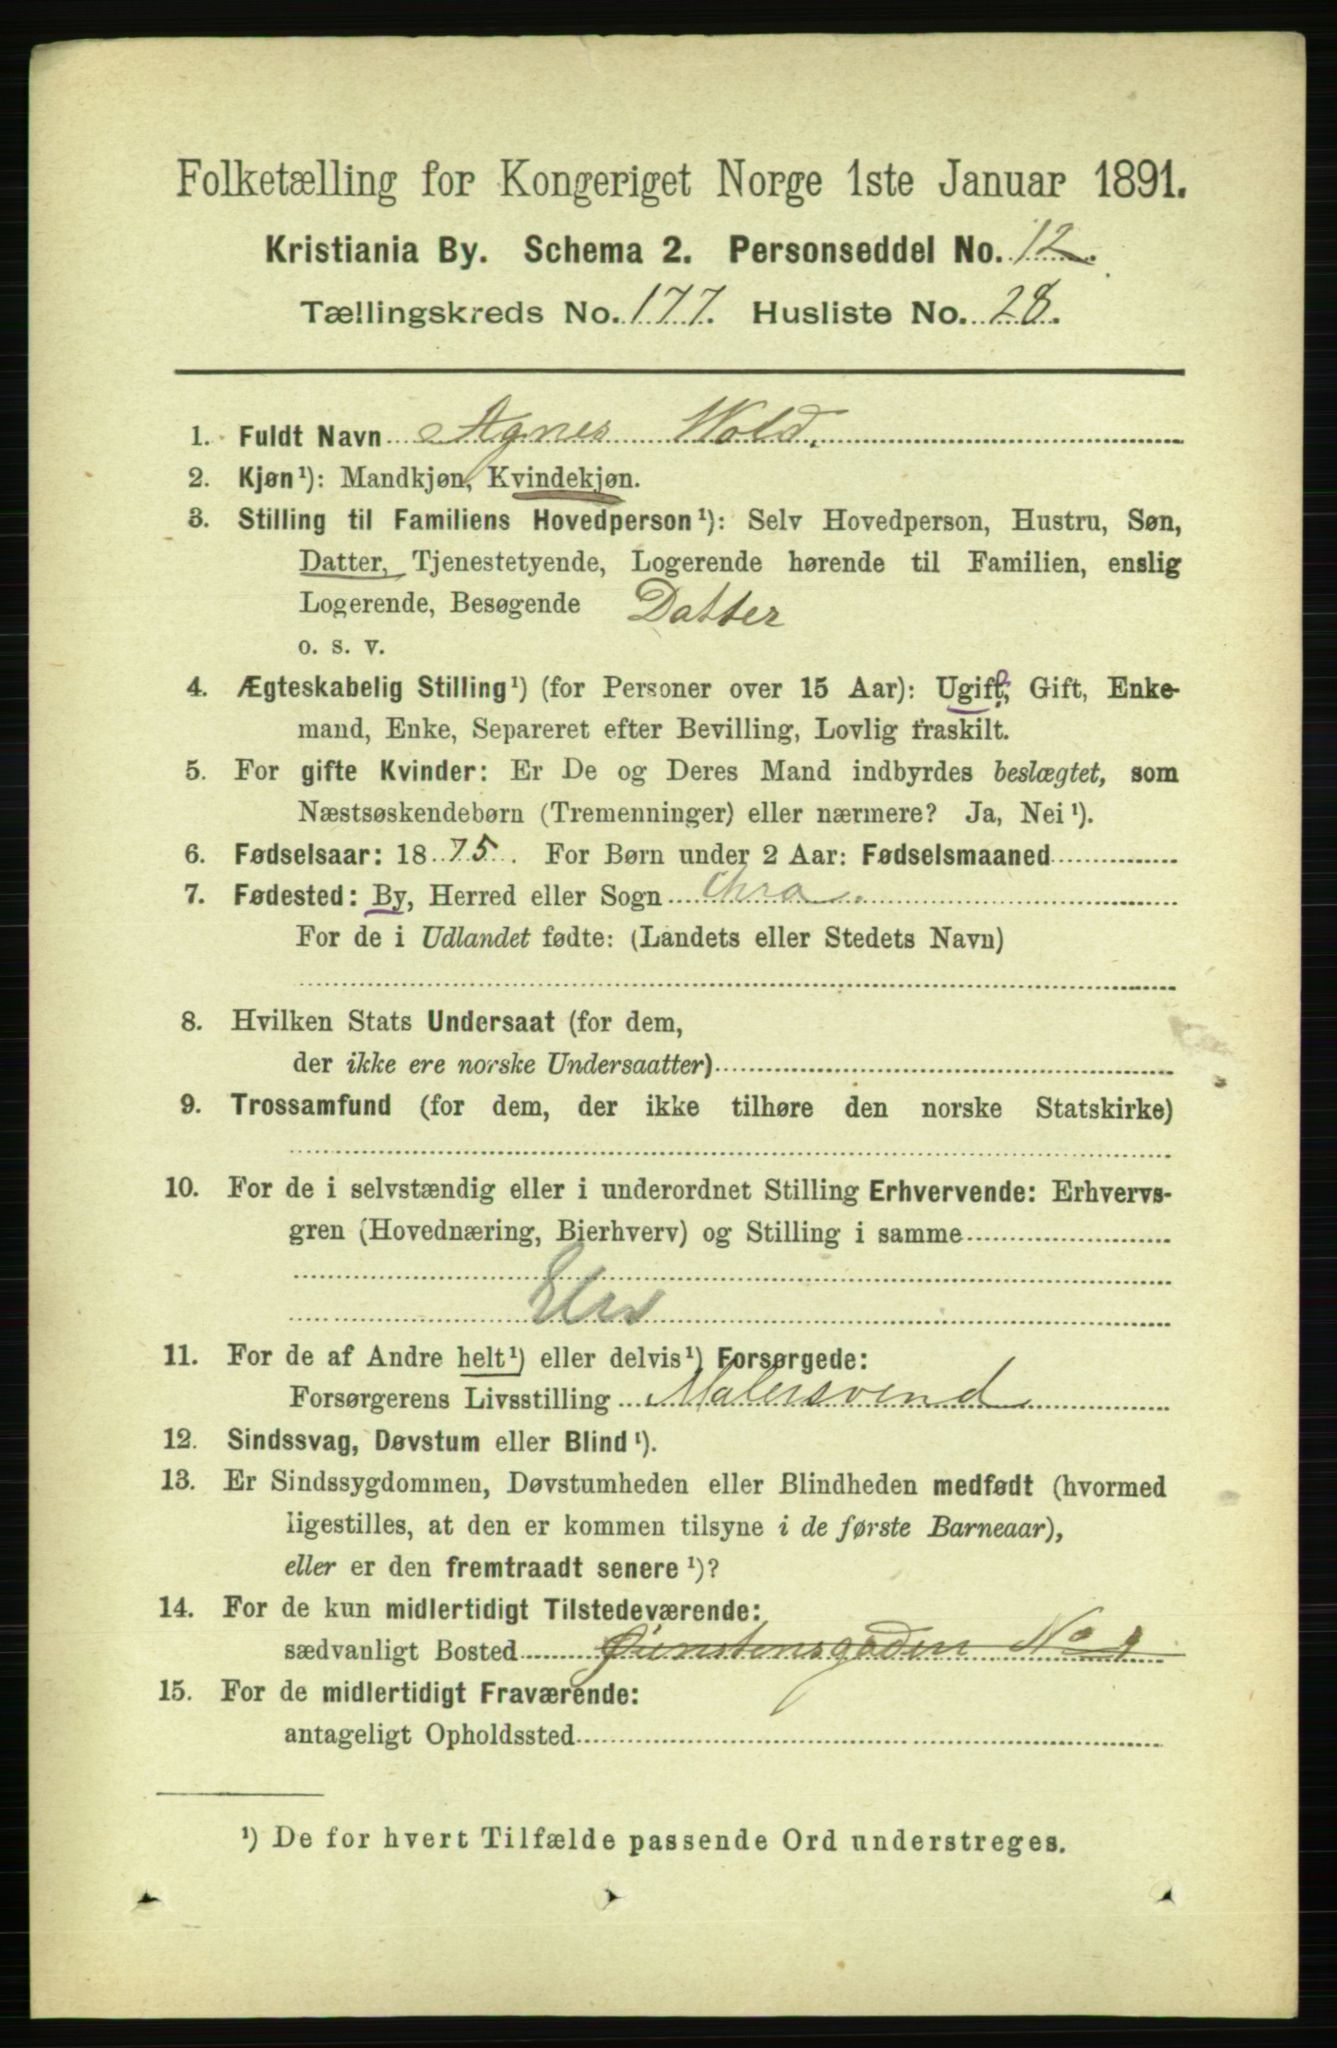 Folketælling for Kongeriget Norge 1ste Januar 1891.
Kristiania By. Schema 2. Personseddel No. 12.
Tællingskreds No. 177. Husliste No. 28.
1. Fuldt Navn Agnes Wold.
2. Kjøn¹): Mandkjøn, Kvindekjøn.
3. Stilling til Familiens Hovedperson¹): Selv Hovedperson, Hustru, Søn,
Datter, Tjenestetyende, Logerende hørende til Familien, enslig
Logerende, Besøgende Datter
o. s. v.
4. Ægteskabelig Stilling¹) (for Personer over 15 Aar): Ugift, Gift, Enke-
mand, Enke, Separeret efter Bevilling, Lovlig fraskilt.
5. For gifte Kvinder: Er De og Deres Mand indbyrdes beslægtet, som
Næstsøskendebørn (Tremenninger) eller nærmere? Ja, Nei¹).
6. Fødselsaar: 1875. For Børn under 2 Aar: Fødselsmaaned
7. Fødested: By, Herred eller Sogn Chra.
For de i Udlandet fødte: (Landets eller Stedets Navn)
8. Hvilken Stats Undersaat (for dem,
der ikke ere norske Undersaatter)
9. Trossamfund (for dem, der ikke tilhøre den norske Statskirke)
10. For de i selvstændig eller i underordnet Stilling Erhvervende: Erhvervs-
gren (Hovednæring, Bierhverv) og Stilling i samme
11. For de af Andre helt¹) eller delvis¹) Forsørgede:
Forsørgerens Livsstilling Malersvend
12. Sindssvag, Døvstum eller Blind¹).
13. Er Sindssygdommen, Døvstumheden eller Blindheden medfødt (hvormed
ligestilles, at den er kommen tilsyne i de første Barneaar),
eller er den fremtraadt senere¹)?
14. For de kun midlertidigt Tilstedeværende:
sædvanligt Bosted No 1
15. For de midlertidigt Fraværende:
antageligt Opholdssted
¹) De for hvert Tilfælde passende Ord understreges.